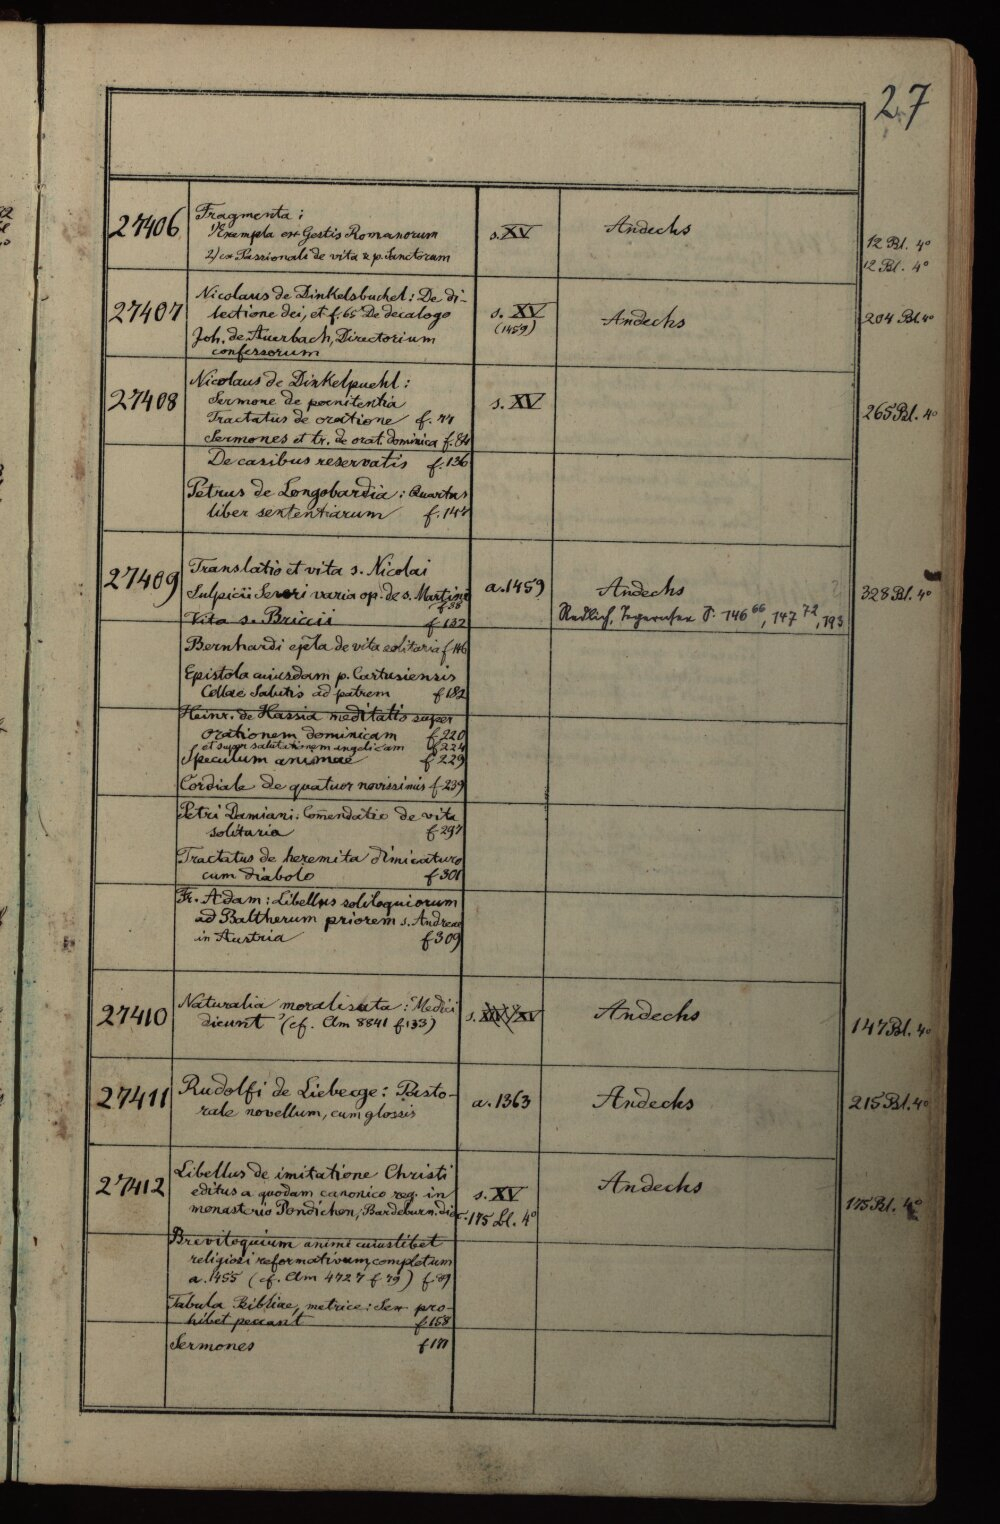 27
27406
Fragmenta:
1) Exempla ex Gestis Romanorum
2) ex Passionali de vita & p. Sanctorum
s. XV
Andechs
12 Bl. 4°
12 Bl. 4°
27407
Nicolaus de Dinkelsbuchel: De di-
lectione dei, et f. 65 De decalogo
Joh. de Auerbach, Directorium
confessorum
s. XV
(1459)
Andechs
204 Bl. 4°
27408
Nicolaus de Dinkelpuehl:
Sermone de poenitentia
Tractatus de oratione f. 77
Sermones et tr. de orat. dominica f. 84
De casibus reservatis f. 136
Petrus de Longobardia: Quartus
liber sententiarum f. 147
s. XV
265 Bl. 4°
27409
Translatio et vita s. Nicolai
Sulpicii Severi varia op. de s. Martino
f 38
Vita s. Bricii f 132
Bernhardi epla de vita solitaria f 146
Epistola cuiusdam p. Cartusiensis
Cellae Salutis ad patrem f 182
Heinr. de Hassia meditatio super
orationem dominicam f 220
et super salutationem angelicam f 224
Speculum animae f 229
Cordiale de quatuor novissimis f 239
Petri Damiani: Commendatio de vita
solitaria f 297
Tractatus de heremita dimicaturo
cum diabolo f 301
Fr. Adam: Libellus soliloquiorum
ad Baltherum priorem s. Andreae
in Austria f 309
a. 1459
Andechs
Redlich, Tegernsee S. 146 66, 147 72, 193
328 Bl. 4°
27410
Naturalia moralisata: Medici
dicunt (cf. Clm 8841 f 133)
s. XIV/XV
Andechs
147 Bl. 4°
27411
Rudolfi de Liebege: Pasto-
rale novellum, cum glossis
a. 1363
Andechs
215 Bl. 4°
27412
Libellus de imitatione Christi
editus a quodam canonico reg. in
monasterio Pondichen, Bardeburn. dioc.
s. XV
175 Bl. 4°
Andechs
175 Bl. 4°
Breviloquium animi cuiuslibet
religiosi reformativum, completum
a. 1455 (cf. Clm 4727 f 79) f 89
Tabula Bibliae, metrice: Sex pro-
hibet peccant f 158
Sermones f 171